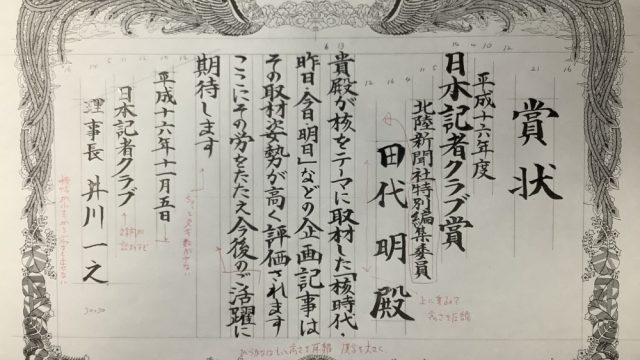 賞状
平成十六年度
日本記者クラブ賞
北陸新聞社特別編集委員
田代明殿
貴殿が核をテーマに取材した「核時代・
昨日・今日・明日」などの企画記事は
その取材姿勢が高く評価されます
ここにその労をたたえ今後のご活躍に
期待します
平成十六年十一月五日
日本記者クラブ
理事長 井川一之